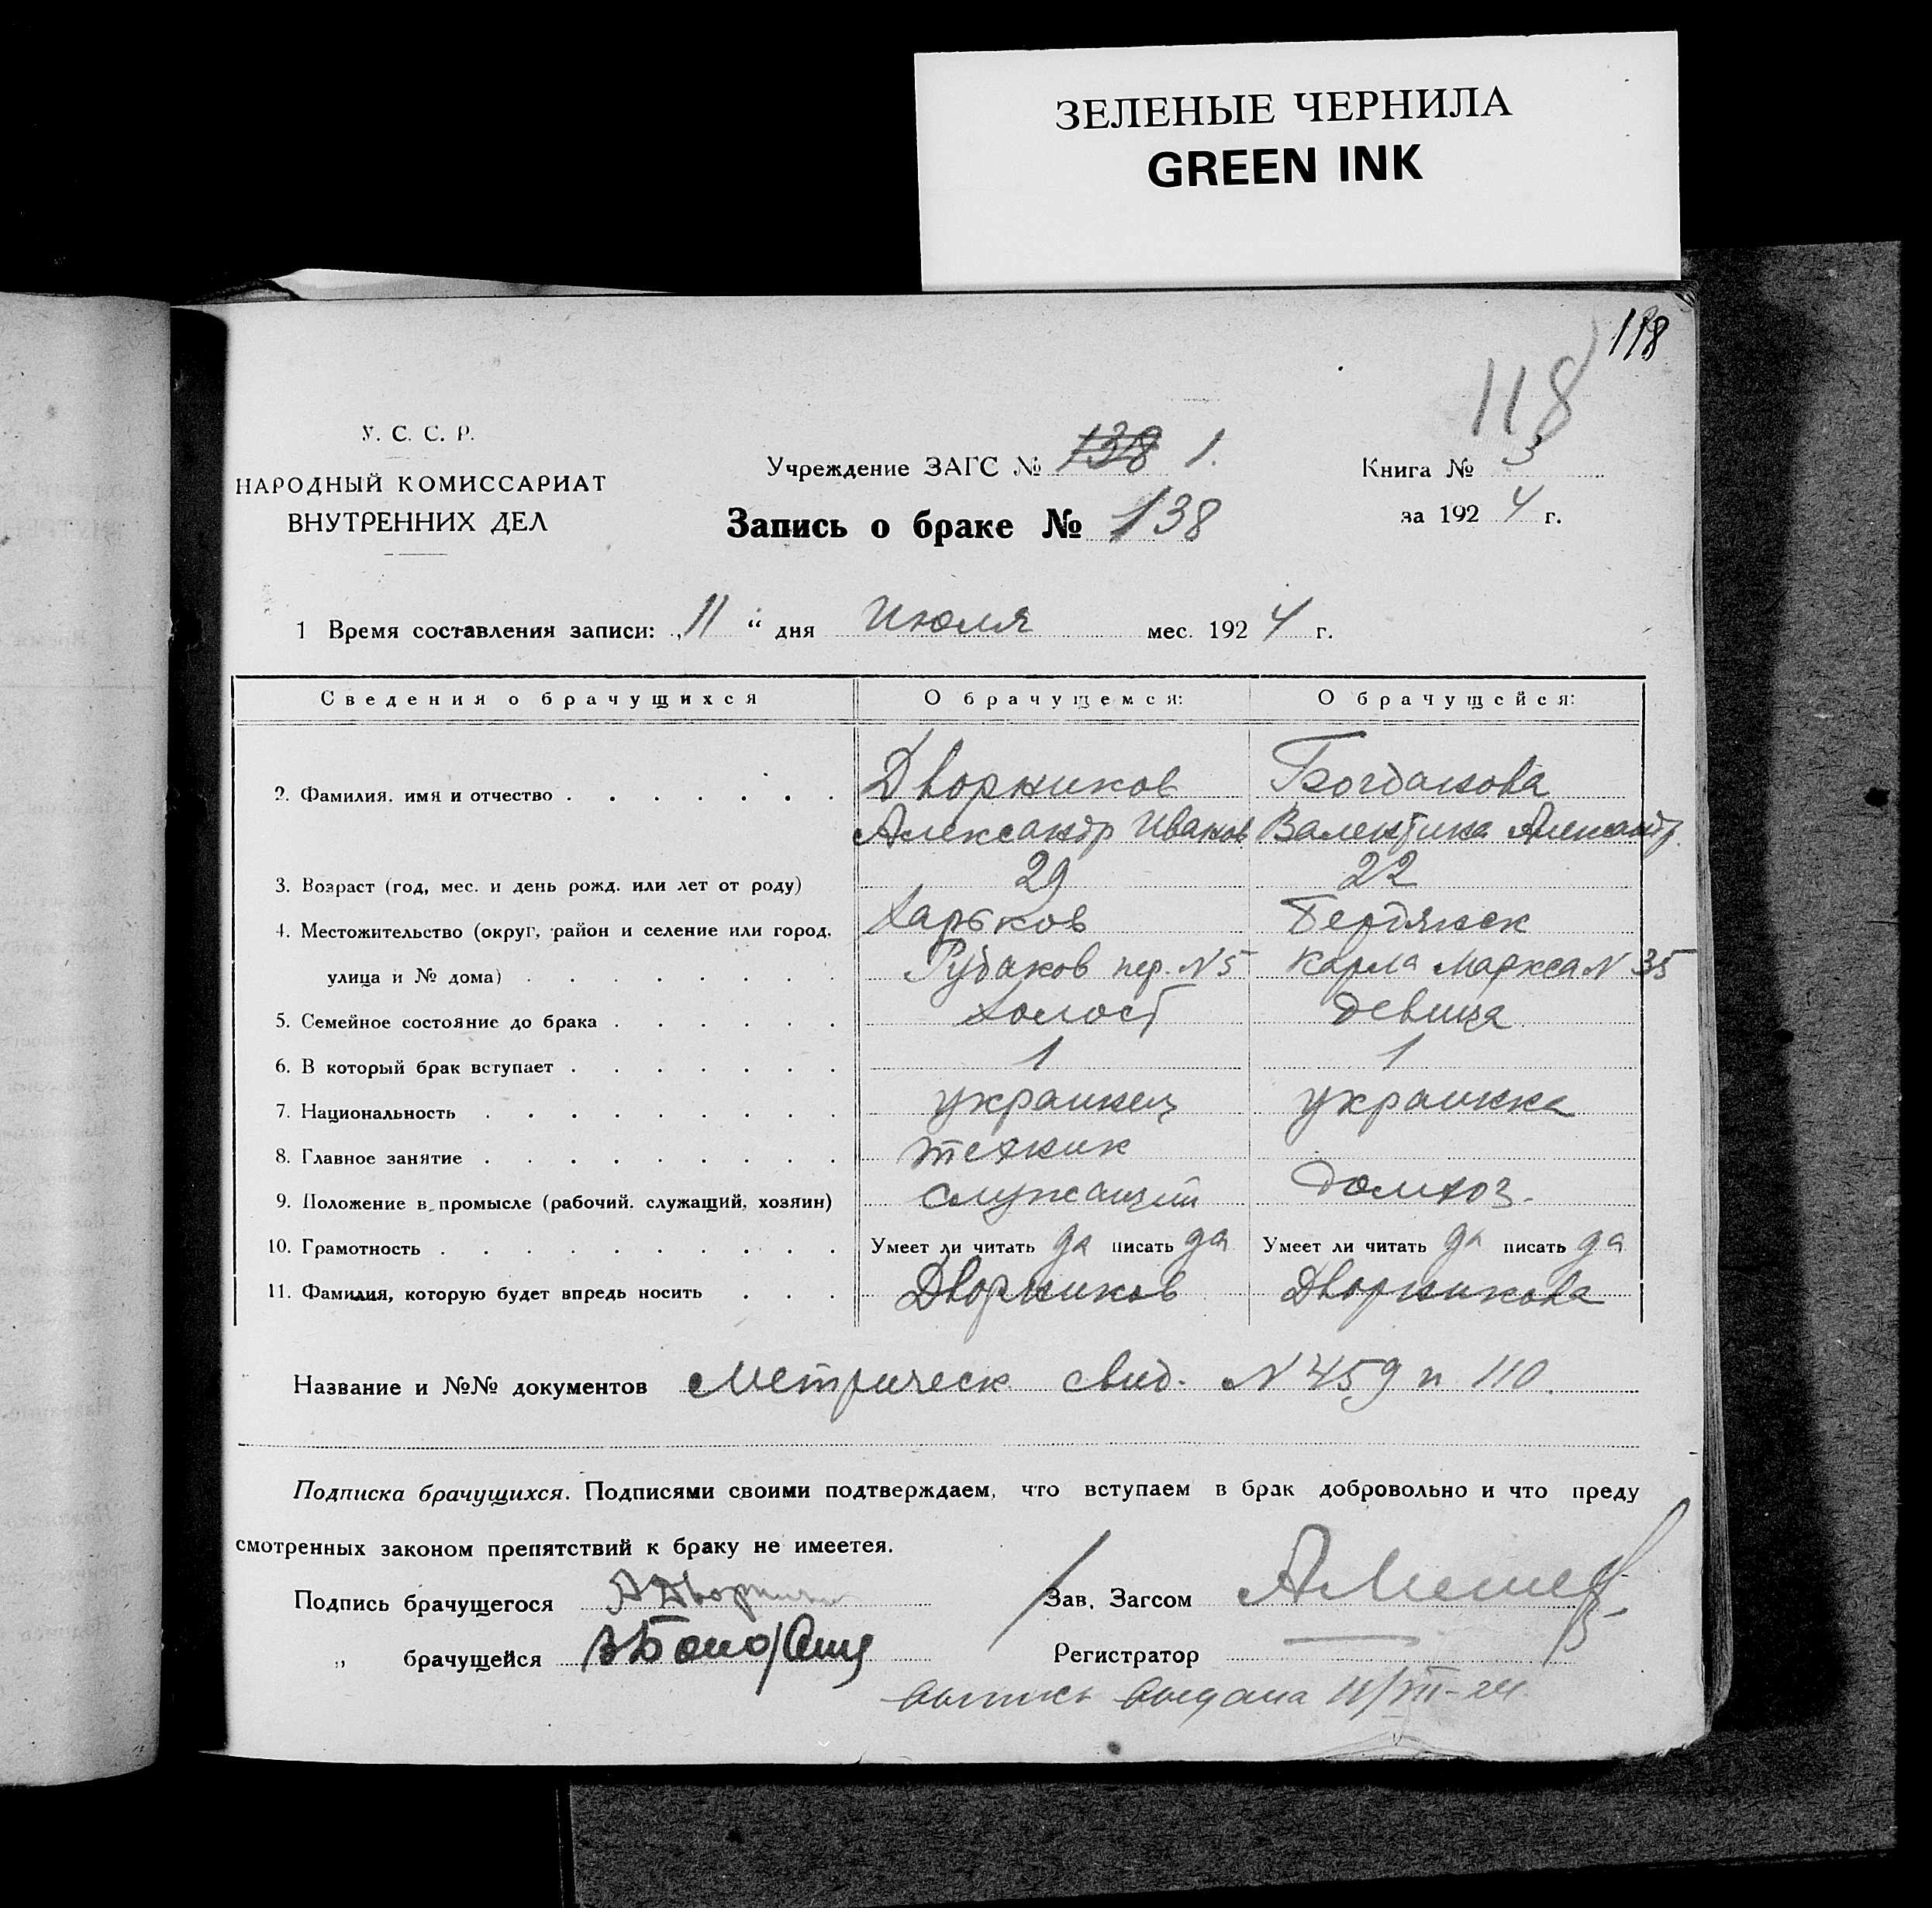 ЗЕЛЕНЫЕ ЧЕРНИЛА
GREEN INK
118
118
У. С. С. Р.
НАРОДНЫЙ КОМИССАРИАТ
ВНУТРЕННИХ ДЕЛ
Учреждение ЗАГС № 138 1.
Книга № 3
Запись о браке № 138
за 1924 г.
1 Время составления записи: „11“ дня Июля мес. 1924 г.
Сведения о брачущихся О брачущемся: О брачущейся:
2. Фамилия, имя и отчество Дворников Богданова
Александр Иванов Валентина Александр.
3. Возраст (год, мес. и день рожд. или лет от роду) 29 22
4. Местожительство (округ, район и селение или город, Харьков Бердянск
улица и № дома) пер. № 5 Карла Маркса № 35
5. Семейное состояние до брака холост девица
6. В который брак вступает 1 1
7. Национальность украинец украинка
8. Главное занятие техник
9. Положение в промысле (рабочий, служащий, хозяин) служащий домхоз.
10. Грамотность Умеет ли читать да писать да Умеет ли читать да писать да
11. Фамилия, которую будет впредь носить Дворников Дворникова
Название и №№ документов Метрическ свид. № 459 и 110.
Подписка брачущихся. Подписями своими подтверждаем, что вступаем в брак добровольно и что преду
смотренных законом препятствий к браку не имеется.
Подпись брачущегося Зав. Загсом
„ брачущейся Регистратор
выпись выдана 11/VII-24